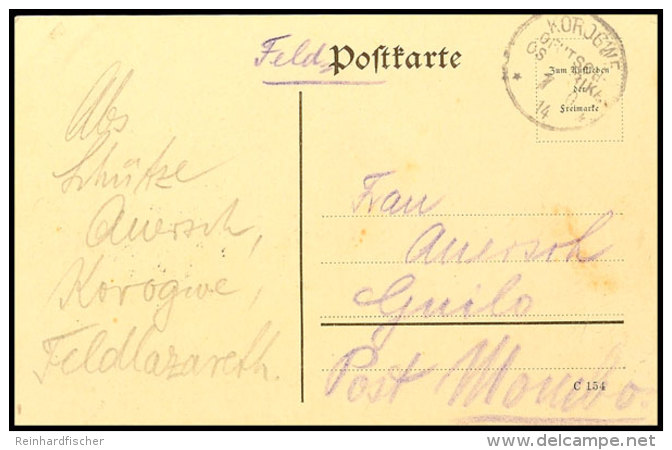 Feld Postkarte
KOROGWE
14
Zum Aufkleben
der
Freimarke
Abs
Schütze
Auersch,
Korogwe,
Feldlazareth.
Frau
Auersch
Guilo
Post Mombo
C 154
Reinhardfischer
www.delcampe.net